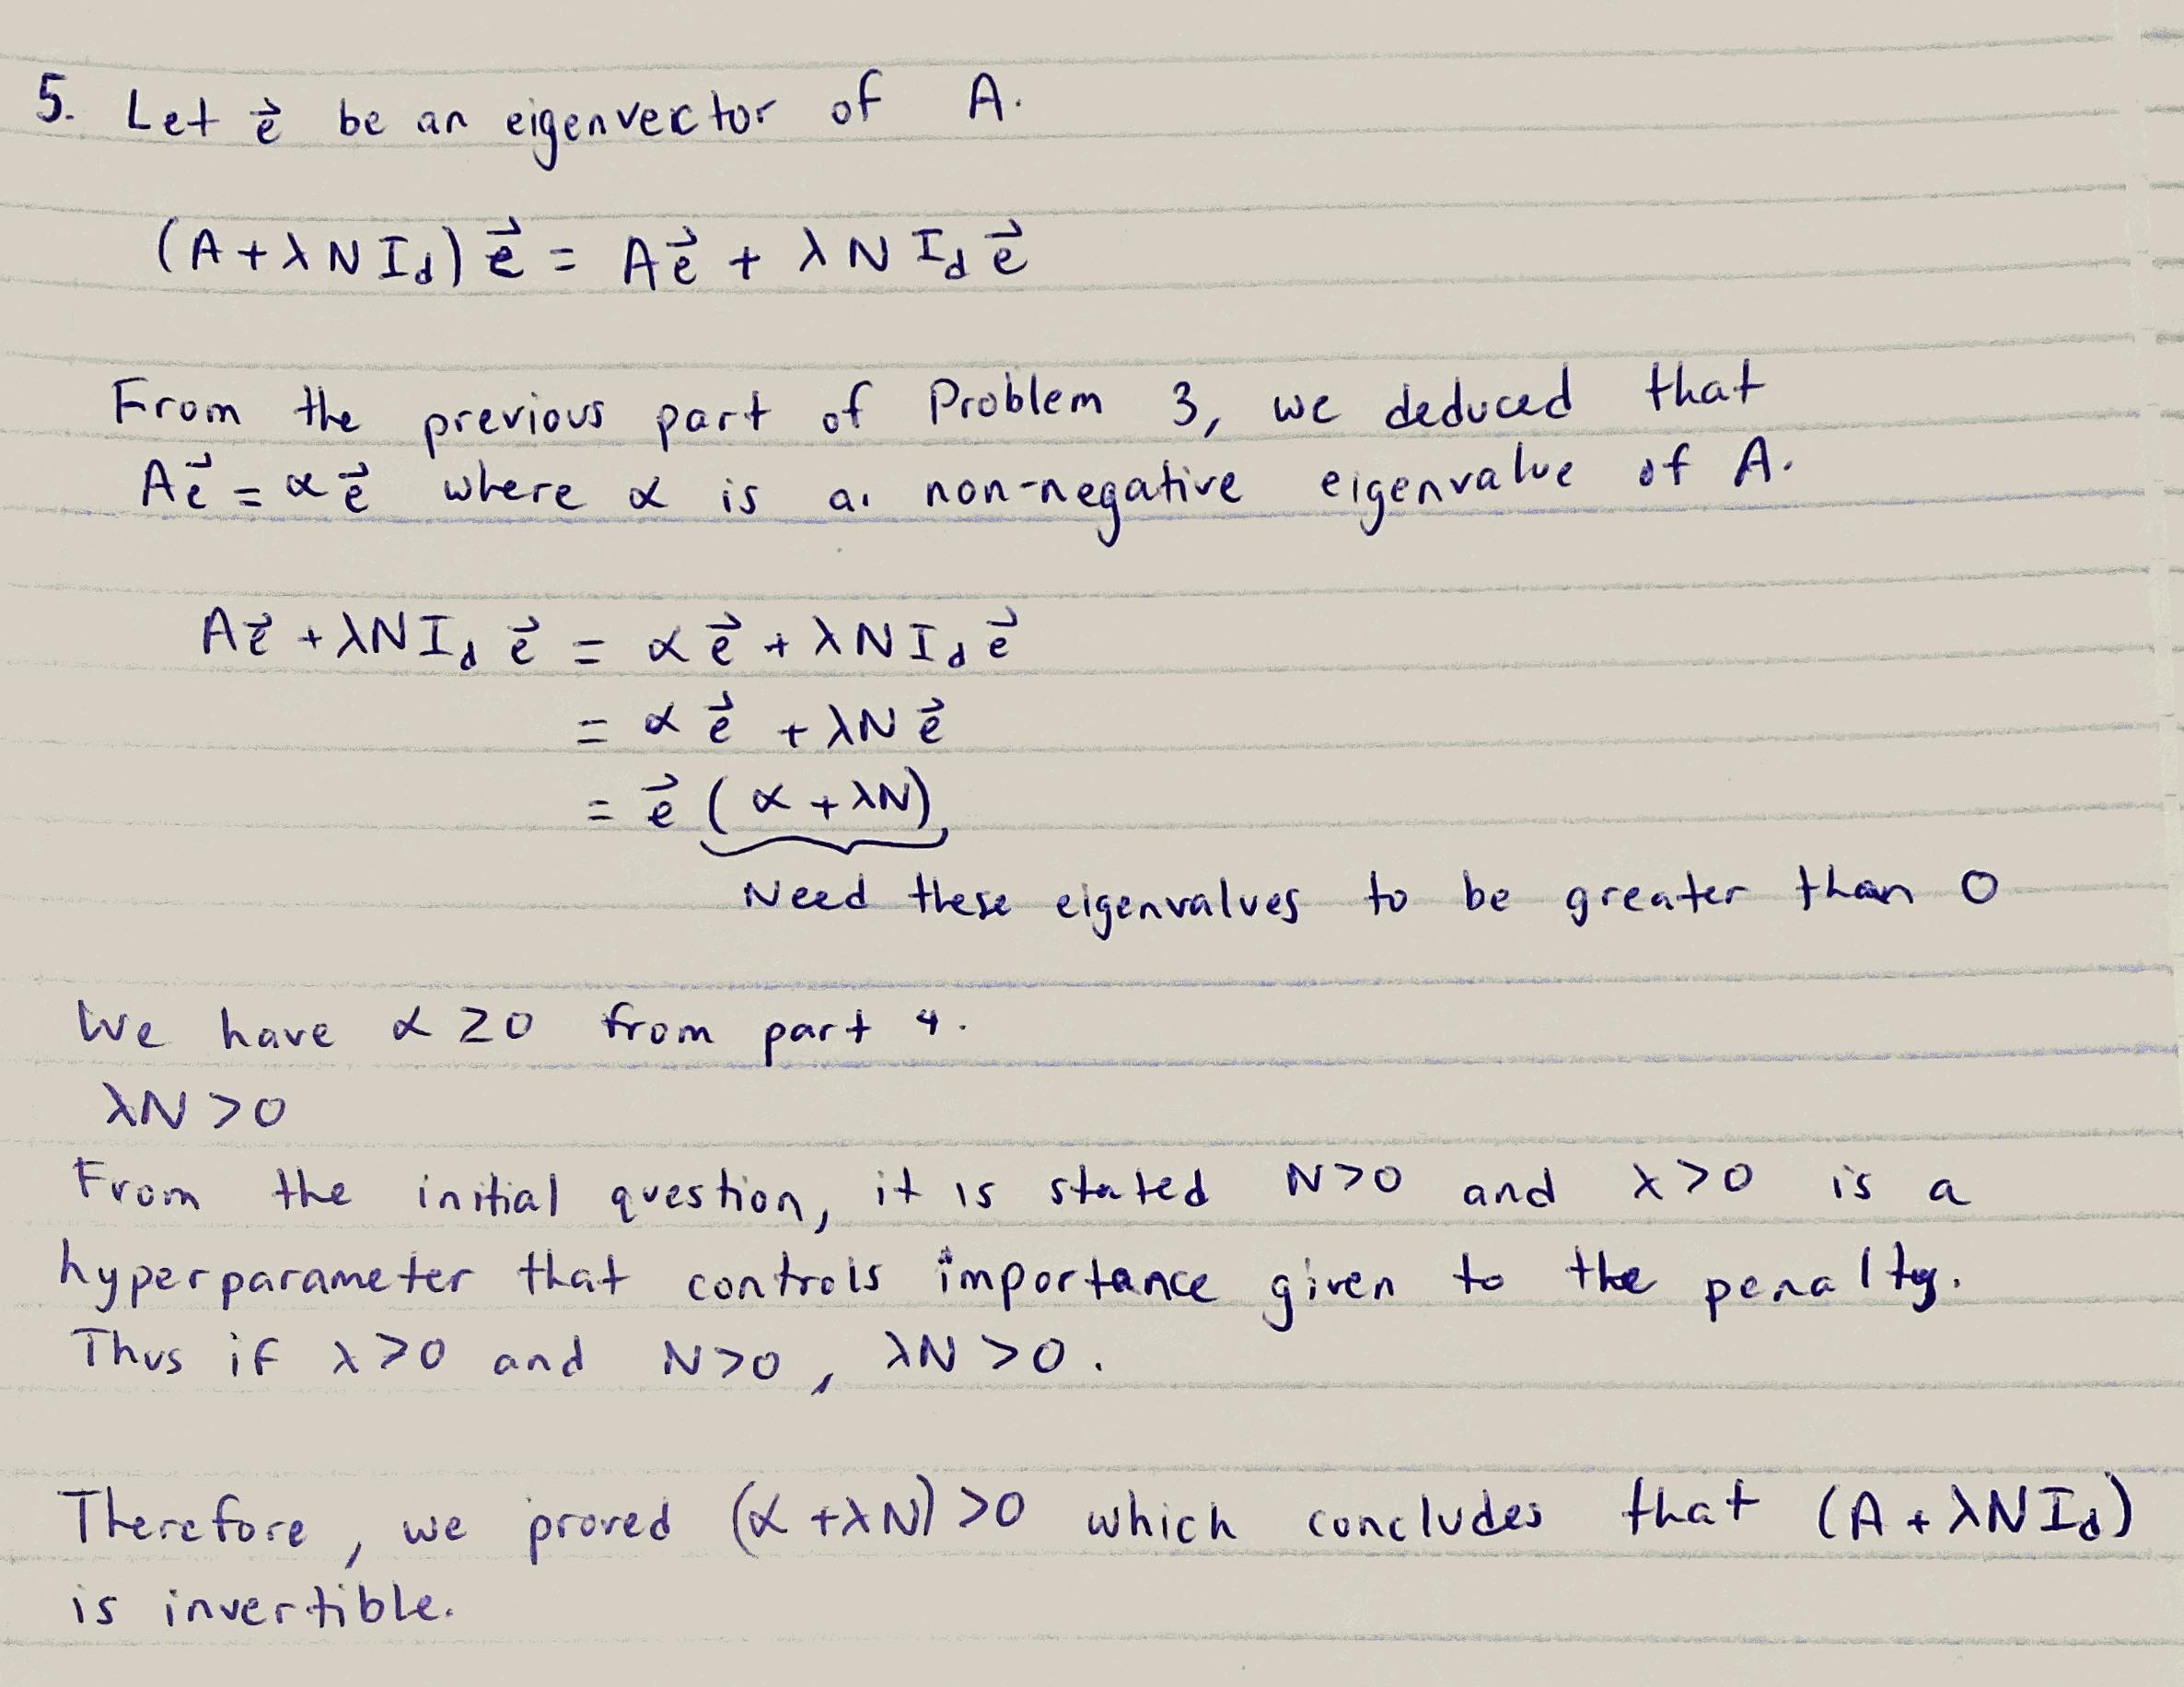 5. Let e⃗ be an eigenvector of A.
(A + λ N I_d) e⃗ = A e⃗ + λ N I_d e⃗
From the previous part of Problem 3, we deduced that
A e⃗ = α e⃗ where α is a non-negative eigenvalue of A.
A e⃗ + λ N I_d e⃗ = α e⃗ + λ N I_d e⃗
= α e⃗ + λ N e⃗
= e⃗ (α + λN)
Need these eigenvalues to be greater than 0
We have α ≥ 0 from part 4.
λN > 0
From the initial question, it is stated N > 0 and λ > 0 is a
hyperparameter that controls importance given to the penalty.
Thus if λ > 0 and N > 0, λN > 0.
Therefore, we proved (α + λN) > 0 which concludes that (A + λ N I_d)
is invertible.